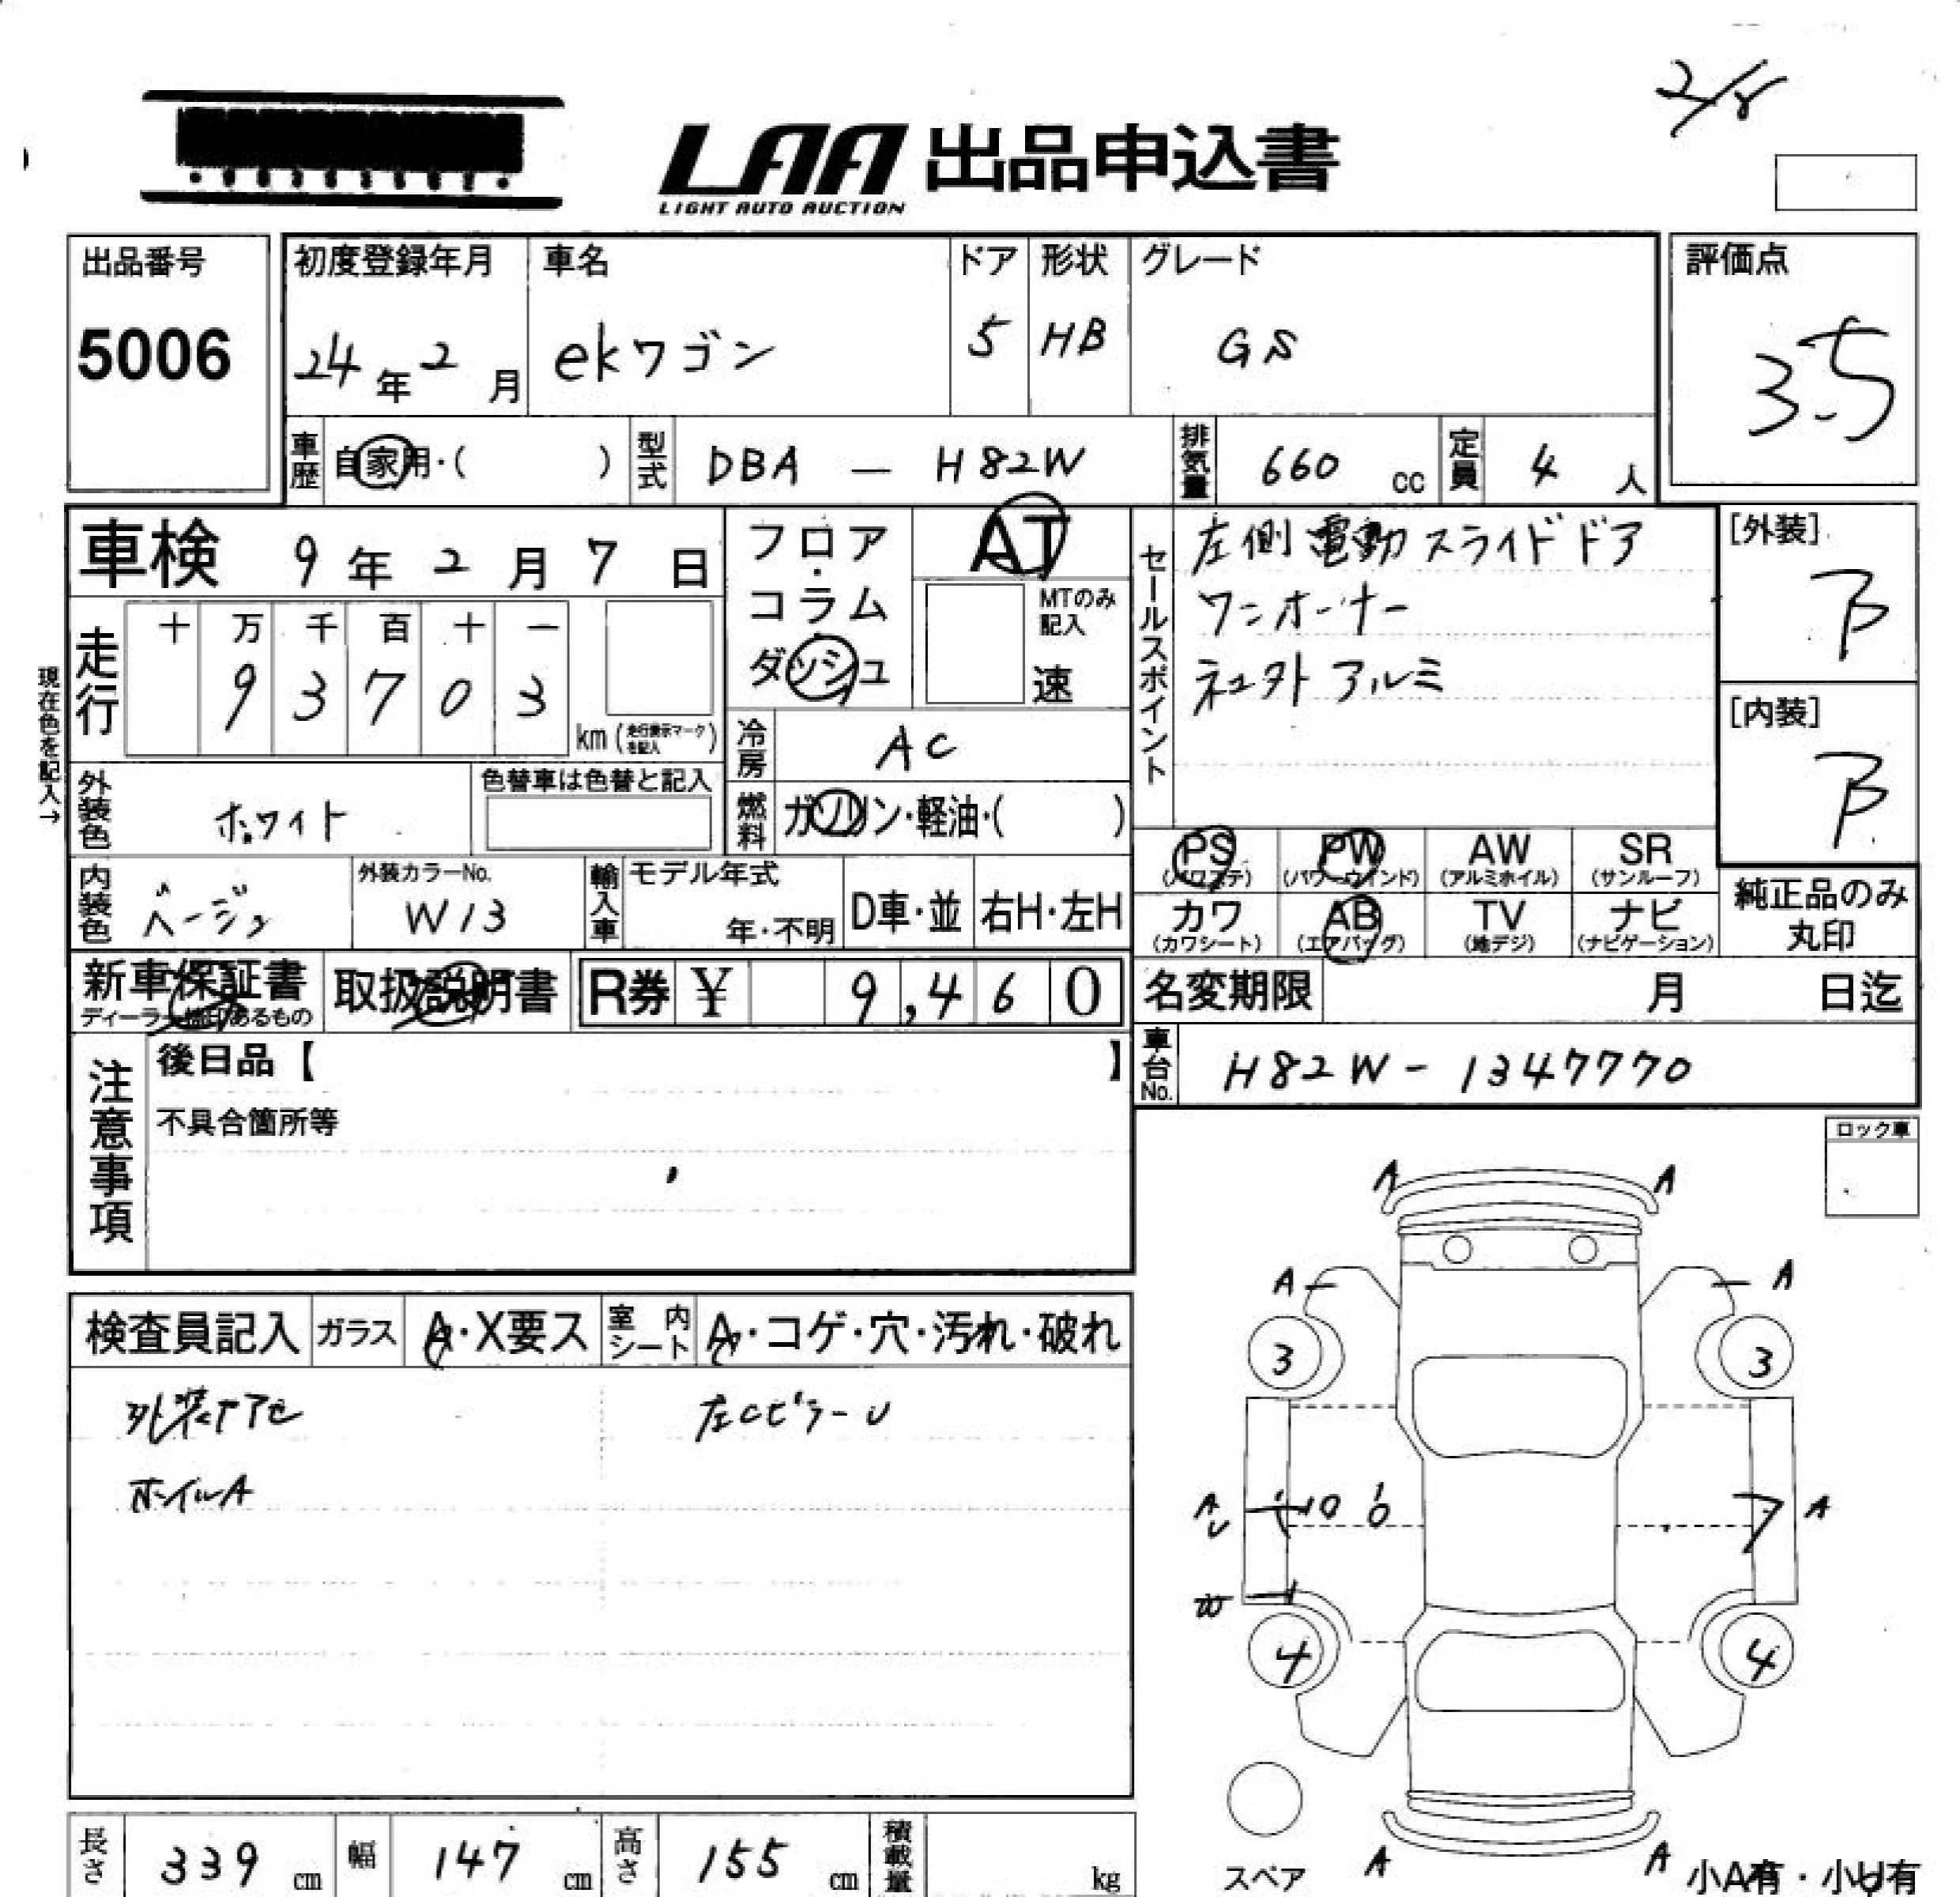 2/5
LAA 出品申込書
LIGHT AUTO AUCTION
出品番号 5006
初度登録年月 24年2月
車名 ekワゴン
ドア 5
形状 HB
グレード GS
評価点 3.5
車歴 自家用・( )
型式 DBA — H82W
排気量 660 cc
定員 4 人
車検 9年2月7日
走行 十 万 千 百 十 一
9 3 7 0 3 km (走行表示マークを記入)
現在色を記入→
フロア・コラム・ダッシュ
AT
MTのみ記入
速
冷房 AC
燃料 ガソリン・軽油・( )
セールスポイント
左側電動スライドドア
ワンオーナー
社外アルミ
[外装] B
[内装] B
外装色 ホワイト
色替車は色替と記入
内装色 ベージュ
外装カラーNo. W13
輸入車 モデル年式 年・不明
D車・並 右H・左H
PS (パワステ) PW (パワーウインド) AW (アルミホイル) SR (サンルーフ)
カワ (カワシート) AB (エアバッグ) TV (地デジ) ナビ (ナビゲーション)
純正品のみ丸印
新車保証書
ディーラー捺印あるもの
取扱説明書
R券 ¥ 9,460
名変期限 月 日迄
車台No. H82W-1347770
注意事項
後日品【 】
不具合箇所等
ロック車
検査員記入
ガラス A・X要ス
室内シート A・コゲ・穴・汚れ・破れ
外装ヤアセ 左CピラーU
ホイルA
A A
A A
3 3
A U 10 6 A
W
4 4
A A
スペア
小A有・小U有
長さ 339 cm
幅 147 cm
高さ 155 cm
積載量 kg